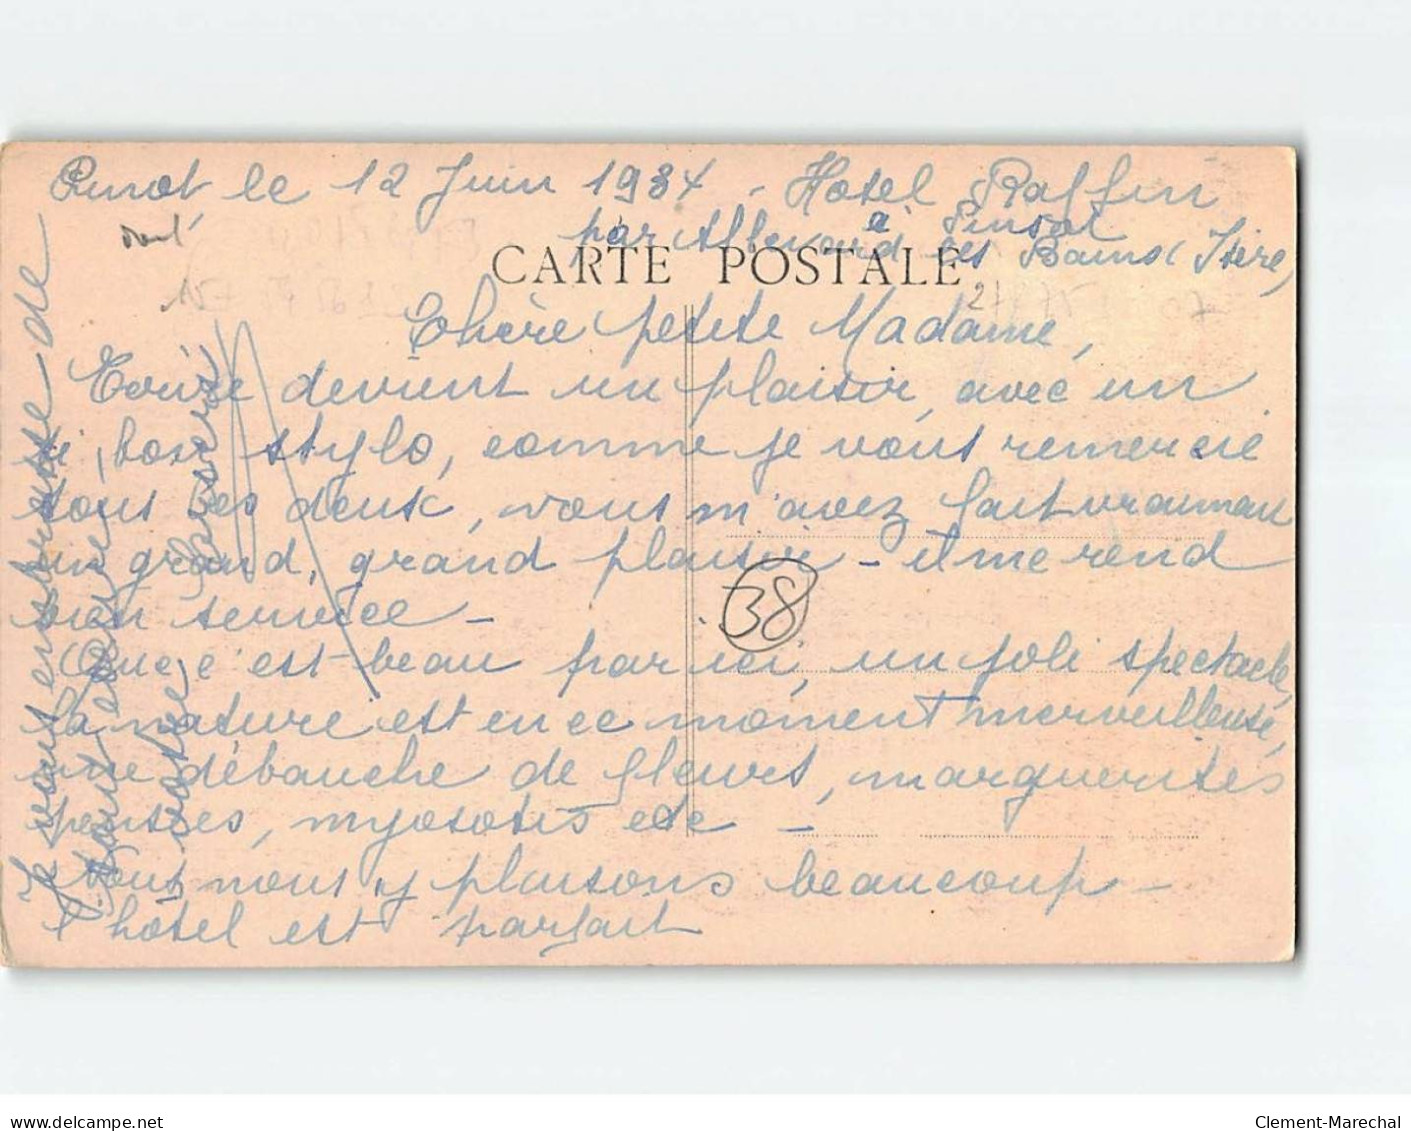 Pinsot, le 12 Juin 1934 - Hotel Raffin
à Pinsot
par Allevard les Bains (Isère)
CARTE POSTALE
Chère petite Madame,
Ecrire devient un plaisir, avec un
si bon stylo, comme je vous remercie
tous les deux, vous m'avez fait vraiment
un grand, grand plaisir - il me rend
bien service -
Que c'est beau par ici, un joli spectacle,
la nature est en ce moment merveilleuse,
une débauche de fleurs, marguerites
pensées, myosotis etc -
tous nous y plaisons beaucoup -
l'hotel est parfait
Je vous embrasse de
tout cœur
votre
38
Clement-Marechal
www.delcampe.net